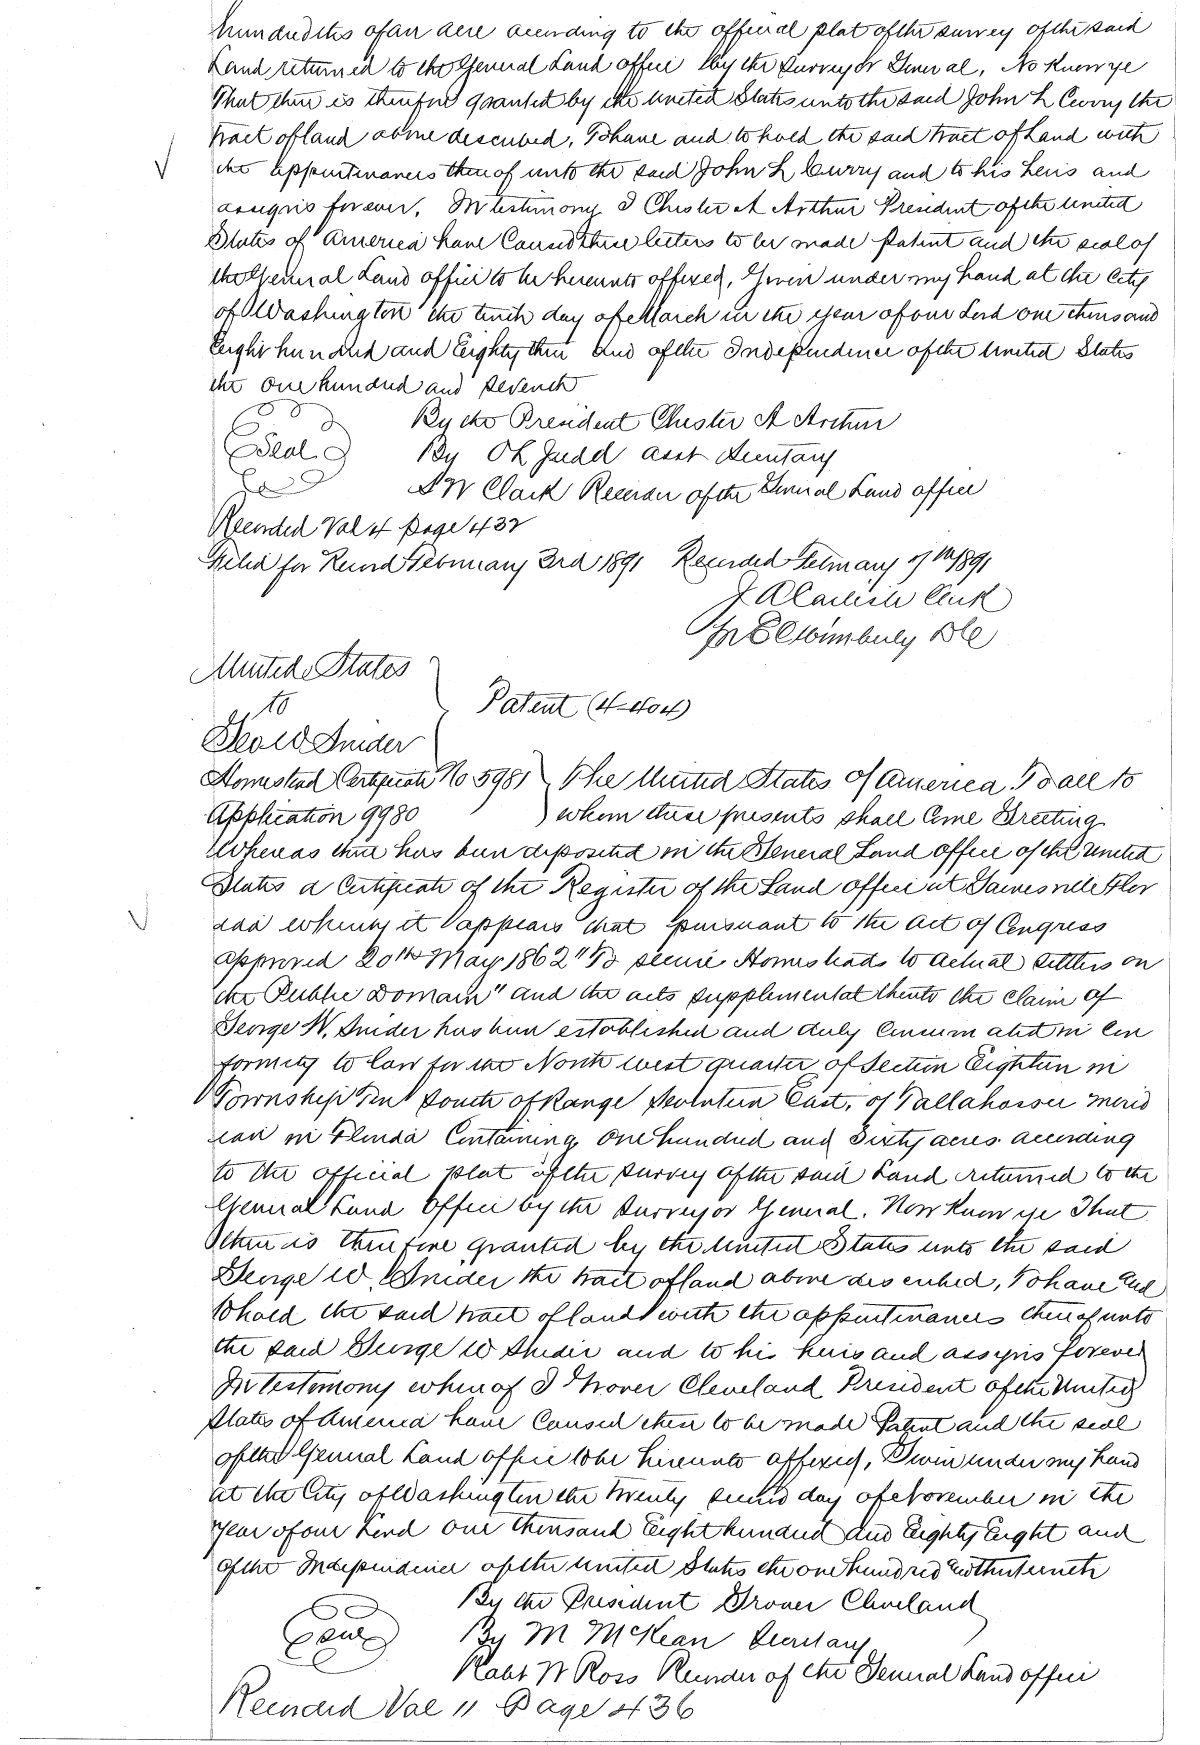 hundredths of an acre according to the official plat of the survey of the said
Land returned to the General Land office by the Surveyor General, No Know ye
That there is therefore granted by the United States unto the said John L Curry the
tract of land above described, To have and to hold the said tract of Land with
the appurtenances thereof unto the said John L Curry and to his heirs and
assigns forever, In testimony I Chester A Arthur President of the United
States of America have Caused these letters to be made patent and the seal of
the General Land office to be hereunto affixed, Given under my hand at the City
of Washington the tenth day of March in the year of our Lord one thousand
Eight hundred and Eighty three and of the Independence of the United States
the one hundred and seventh
By the President Chester A Arthur
Seal
By O L Judd asst Secretary
S W Clark Recorder of the General Land office
Recorded Vol 4 page 432
Filed for Record February 3rd 1891 Recorded February 7th 1891
J A Carlisle Clerk
DC
United States
to
Geo W Snider
Patent (4-404)
Homestead Certificate No 5981 The United States of America To all to
Application 9980 whom these presents shall Come Greeting
Whereas there has been deposited in the General Land office of the United
States a Certificate of the Register of the Land office at Gainesville Flor
ida whereby it appears that pursuant to the Act of Congress
approved 20th May 1862 "To secure Homesteads to actual settlers on
the Public Domain" and the acts supplemental thereto the claim of
George W. Snider has been established and duly Consum ated in Con
formity to law for the North west quarter of Section Eighteen in
Township Ten south of Range Seventeen East, of Tallahassee merid
ian in Florida Containing one hundred and Sixty acres according
to the official plat of the survey of the said Land returned to the
General Land office by the Surveyor General. Now Know ye That
there is therefore granted by the United States unto the said
George W. Snider the tract of land above described, To have and
to hold the said tract of land with the appurtenances thereof unto
the said George W Snider and to his heirs and assigns forever
In testimony whereof I Grover Cleveland President of the United
States of America have Caused these to be made Patent and the seal
of the General Land office to be hereunto affixed, Given under my hand
at the City of Washington the twenty second day of November in the
year of our Lord one thousand Eight hundred and Eighty Eight and
of the Independence of the United States the one hundred and thirteenth
By the President Grover Cleveland
Seal
By M McKean Secretary
Robt W Ross Recorder of the General Land office
Recorded Vol 11 Page 436